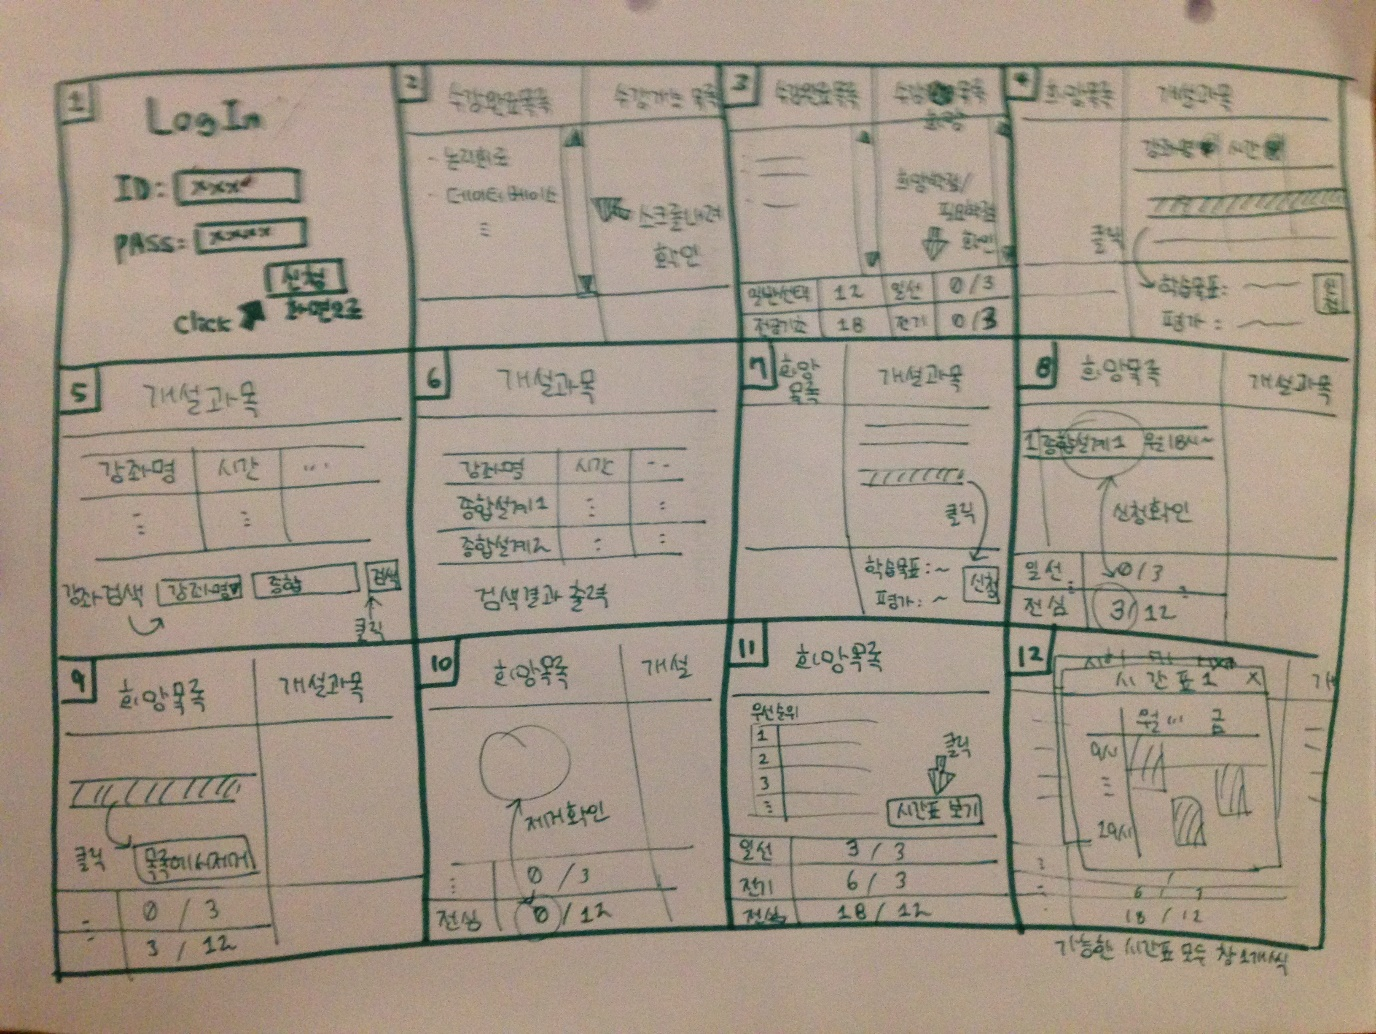 1
LogIn
ID: xxx
PASS: xxxx
신청
화면으로
Click
2
수강완료목록
논리회로
데이터베이스
스크롤내려
확인
3
수강완료목록
희망
희망학점/
필요학점
확인
일반선택 12 일선 0/3
전공기초 18 전기 0/3
4
희망목록 개설과목
강좌명 시간
클릭
학습목표:
평가:
신청
5
개설과목
강좌명 시간 ...
강좌검색 강좌명 종합 검색
클릭
6
개설과목
강좌명 시간 ..
종합설계1
종합설계2
검색결과 출력
7
희망
목록
개설과목
클릭
학습목표:~
평가:~
신청
8
희망목록 개설과목
1 종합설계1 월 18시~
신청확인
일선 0/3
전심 3/12
9
희망목록 개설과목
클릭 목록에서제거
0/3
3/12
10
희망목록 개설
제거확인
0/3
전심 0/12
11
희망목록
우선순위
1
2
3
클릭
시간표 보기
일선 3/3
전기 6/3
전심 18/12
12
시간표1 X
월 ... 금
9시
18/12
가능한 시간표 모두 창1개씩